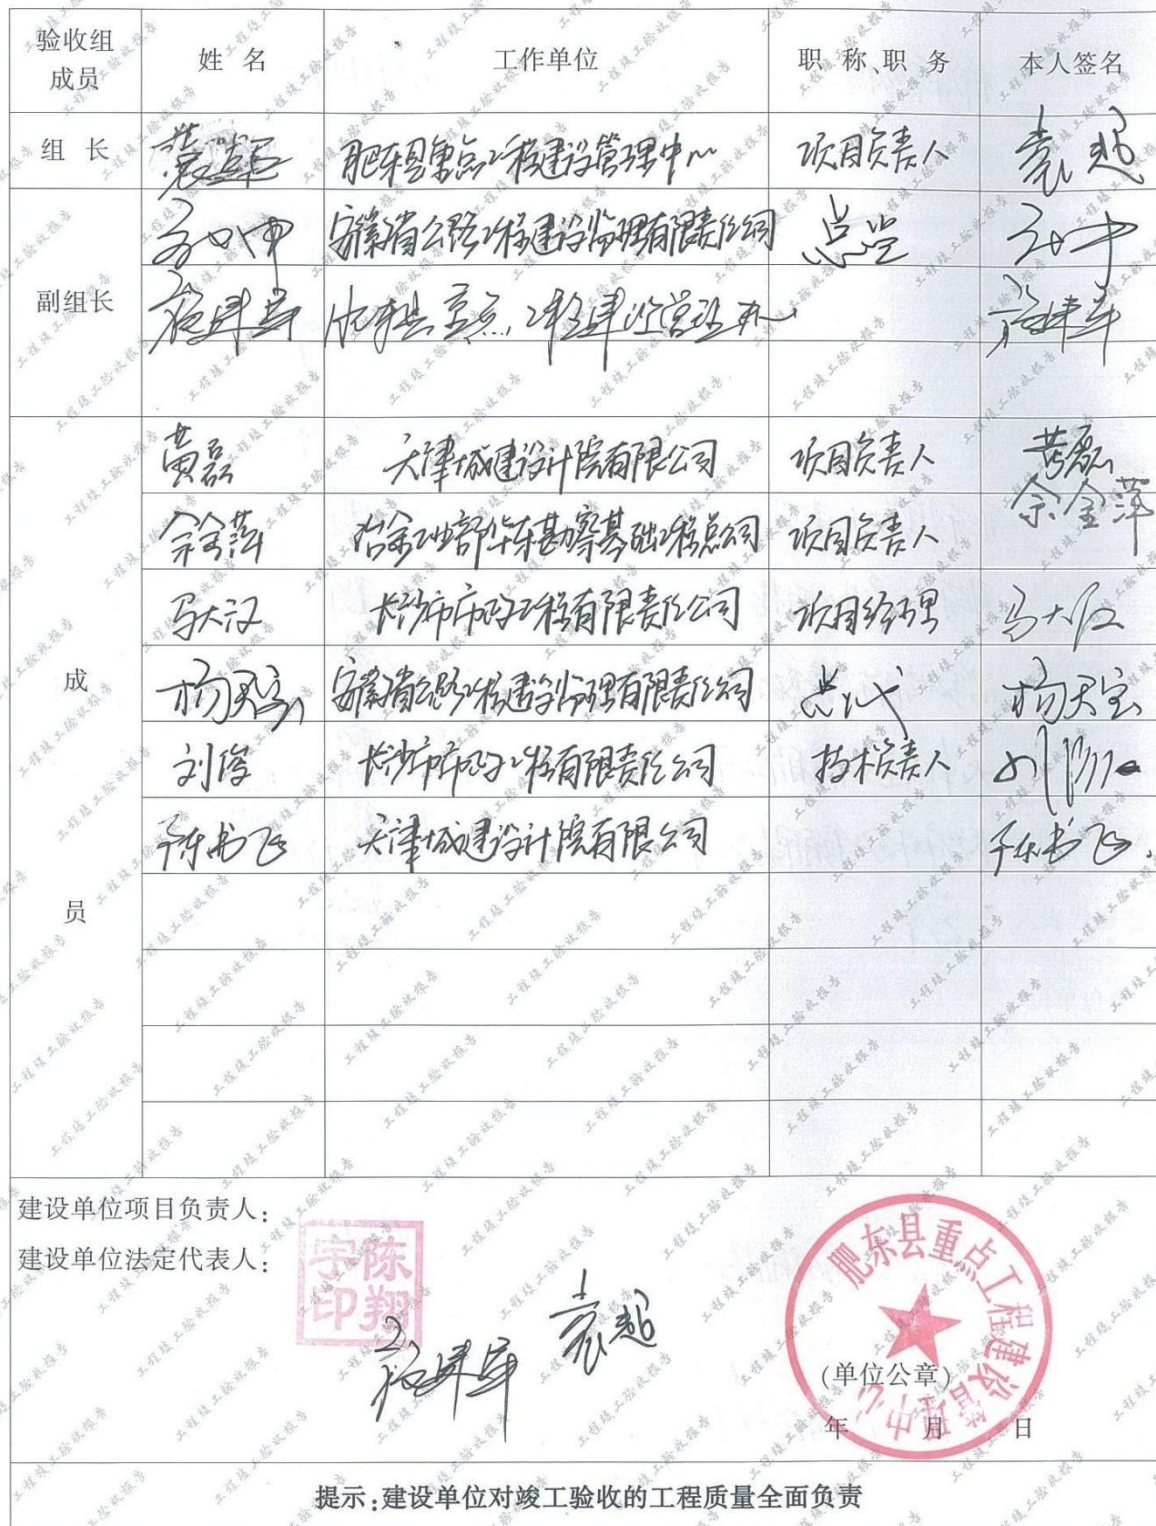 验收组成员 姓 名 工作单位 职 称、职 务 本人签名
组 长 袁超 肥东县重点工程建设管理中心 项目负责人 袁超
副组长
安徽省公路工程建设监理有限责任公司 总监
肥东县重点工程建设管理
黄磊 天津城建设计院有限公司 项目负责人 黄磊
余金萍 冶金工业部华东勘察基础工程总公司 项目负责人 余金萍
马大汉 长沙市市政工程有限责任公司 项目经理 马大汉
成 杨天宝 安徽省公路工程建设监理有限责任公司 总代 杨天宝
刘俊 长沙市市政工程有限责任公司 技术负责人 刘俊
陈书飞 天津城建设计院有限公司 陈书飞
员
建设单位项目负责人：
建设单位法定代表人：
陈翔宇印
袁超
肥东县重点工程建设管理中心
(单位公章)
年 月 日
提示：建设单位对竣工验收的工程质量全面负责
工程竣工验收报告